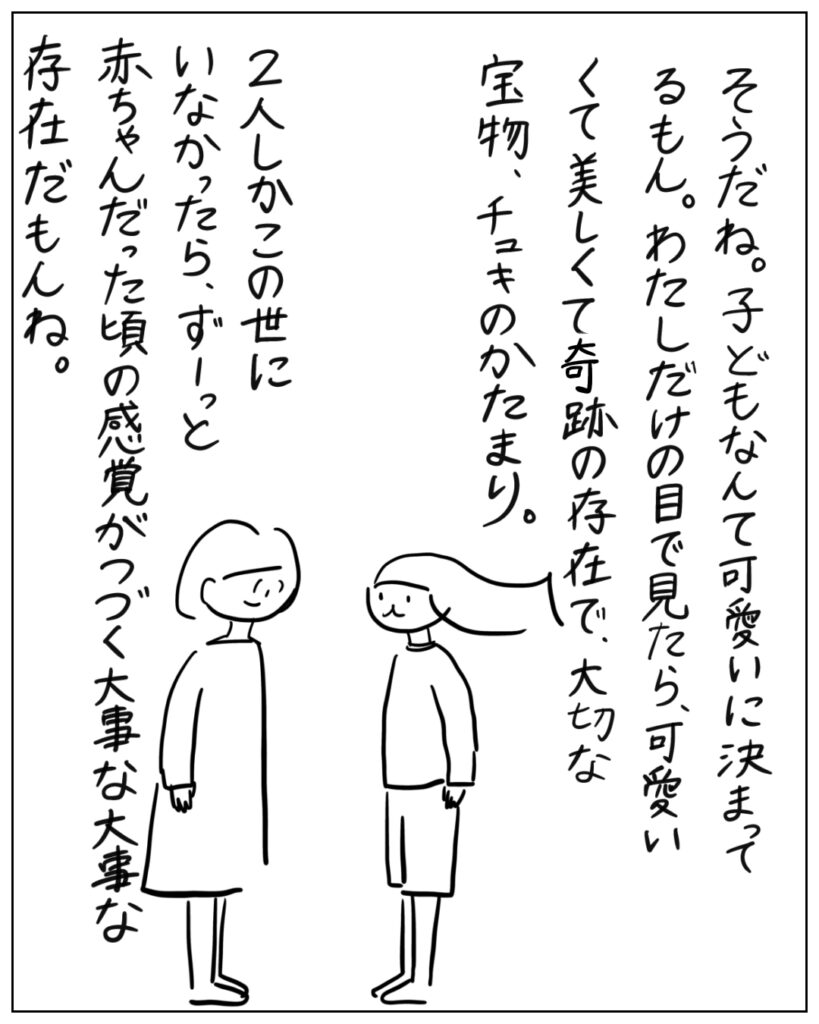 そうだね。子どもなんて可愛いに決まって
るもん。わたしだけの目で見たら、可愛い
くて美しくて奇跡の存在で、大切な
宝物、チュキのかたまり。
2人しかこの世に
いなかったら、ずーっと
赤ちゃんだった頃の感覚がつづく大事な大事な
存在だもんね。